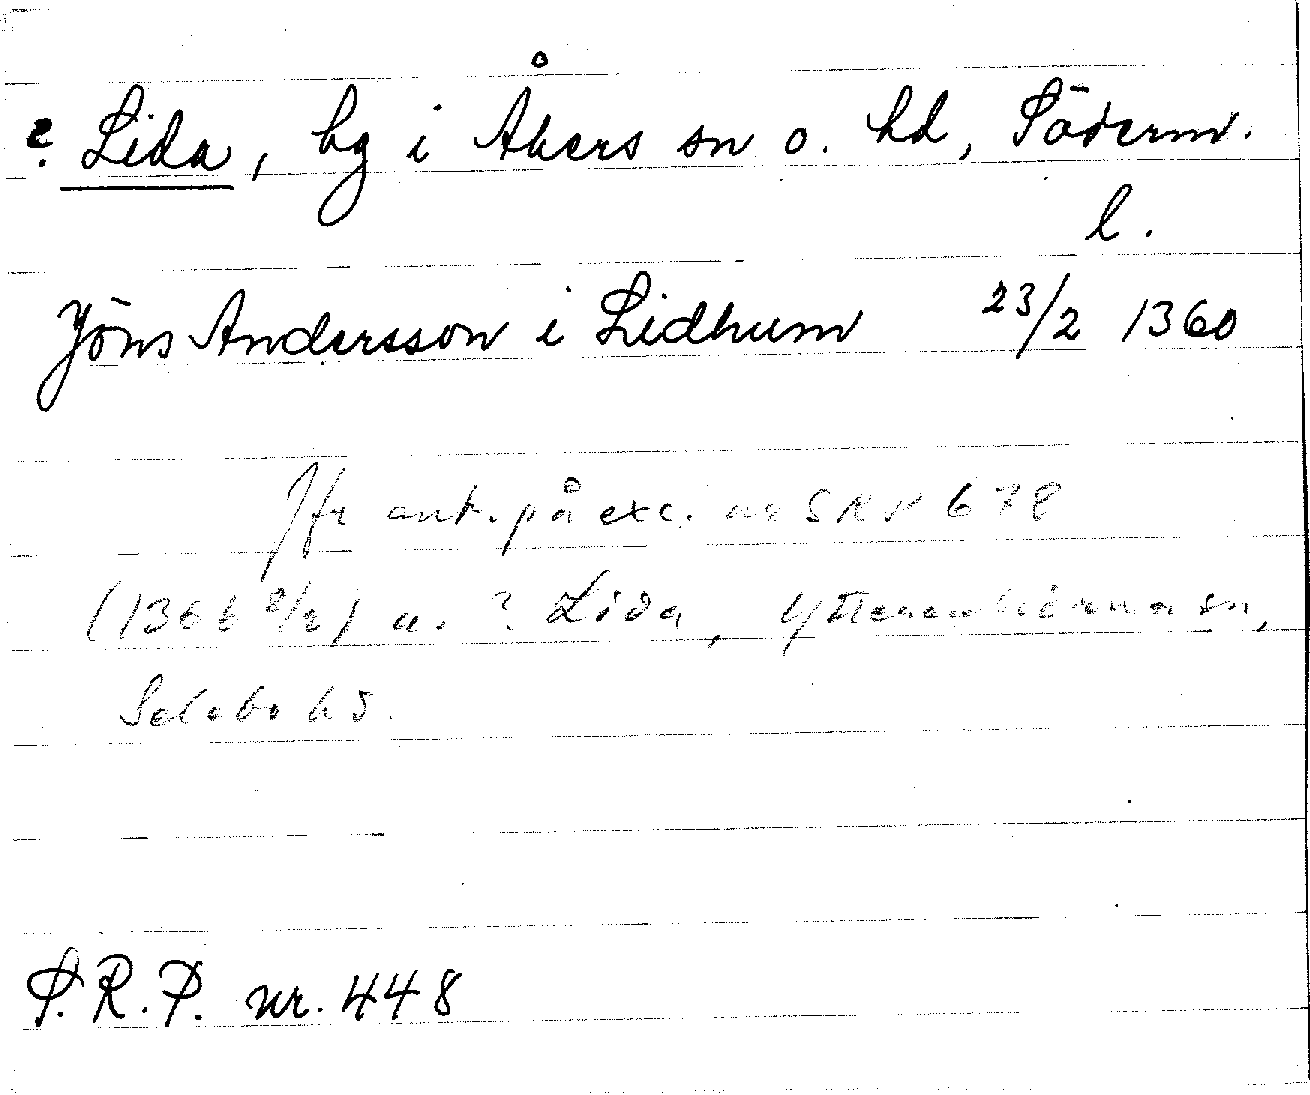 ? Lida, bg i Åkers sn o. hd, Söderm.
l.
Jöns Andersson i Lidhum 23/2 1360
Jfr ant. på exc. ur SRP 678
(1366 8/2) u. ? Lida, Ytterenhörna sn,
Selebo hd.
S.R.P. nr. 448